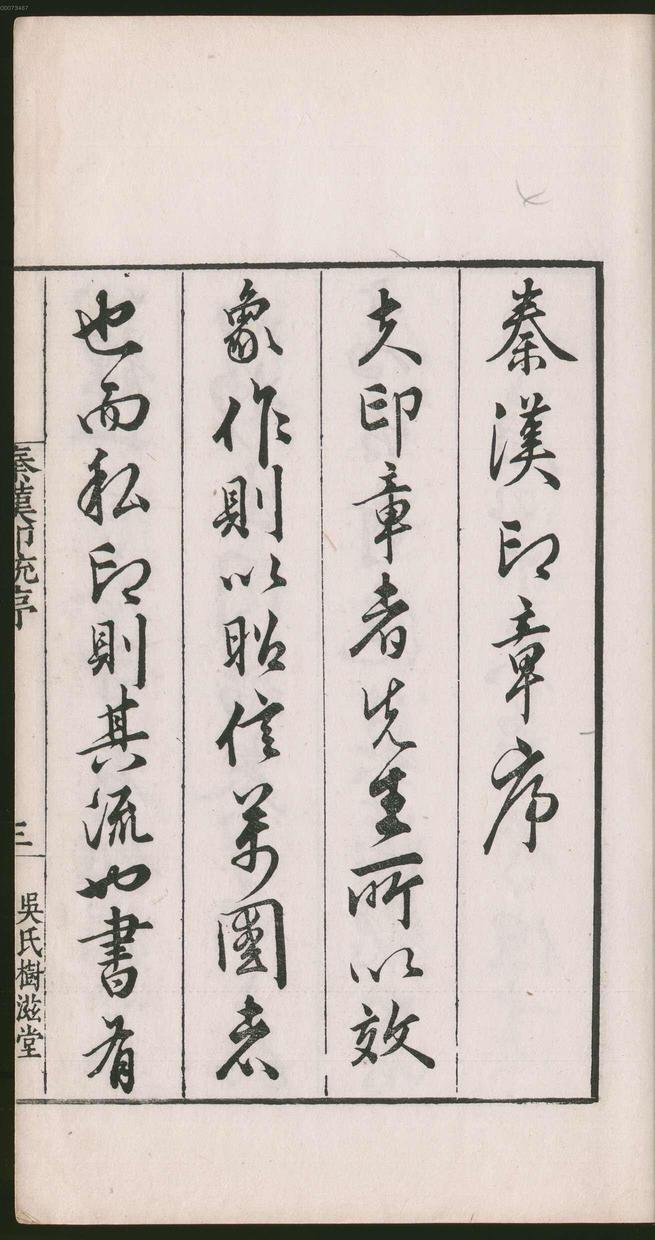 00073467
秦漢印章序
夫印章者先生所以效
象作則以昭信萬國者
也而私印則其流也書有
秦漢印統序
三
吳氏樹滋堂